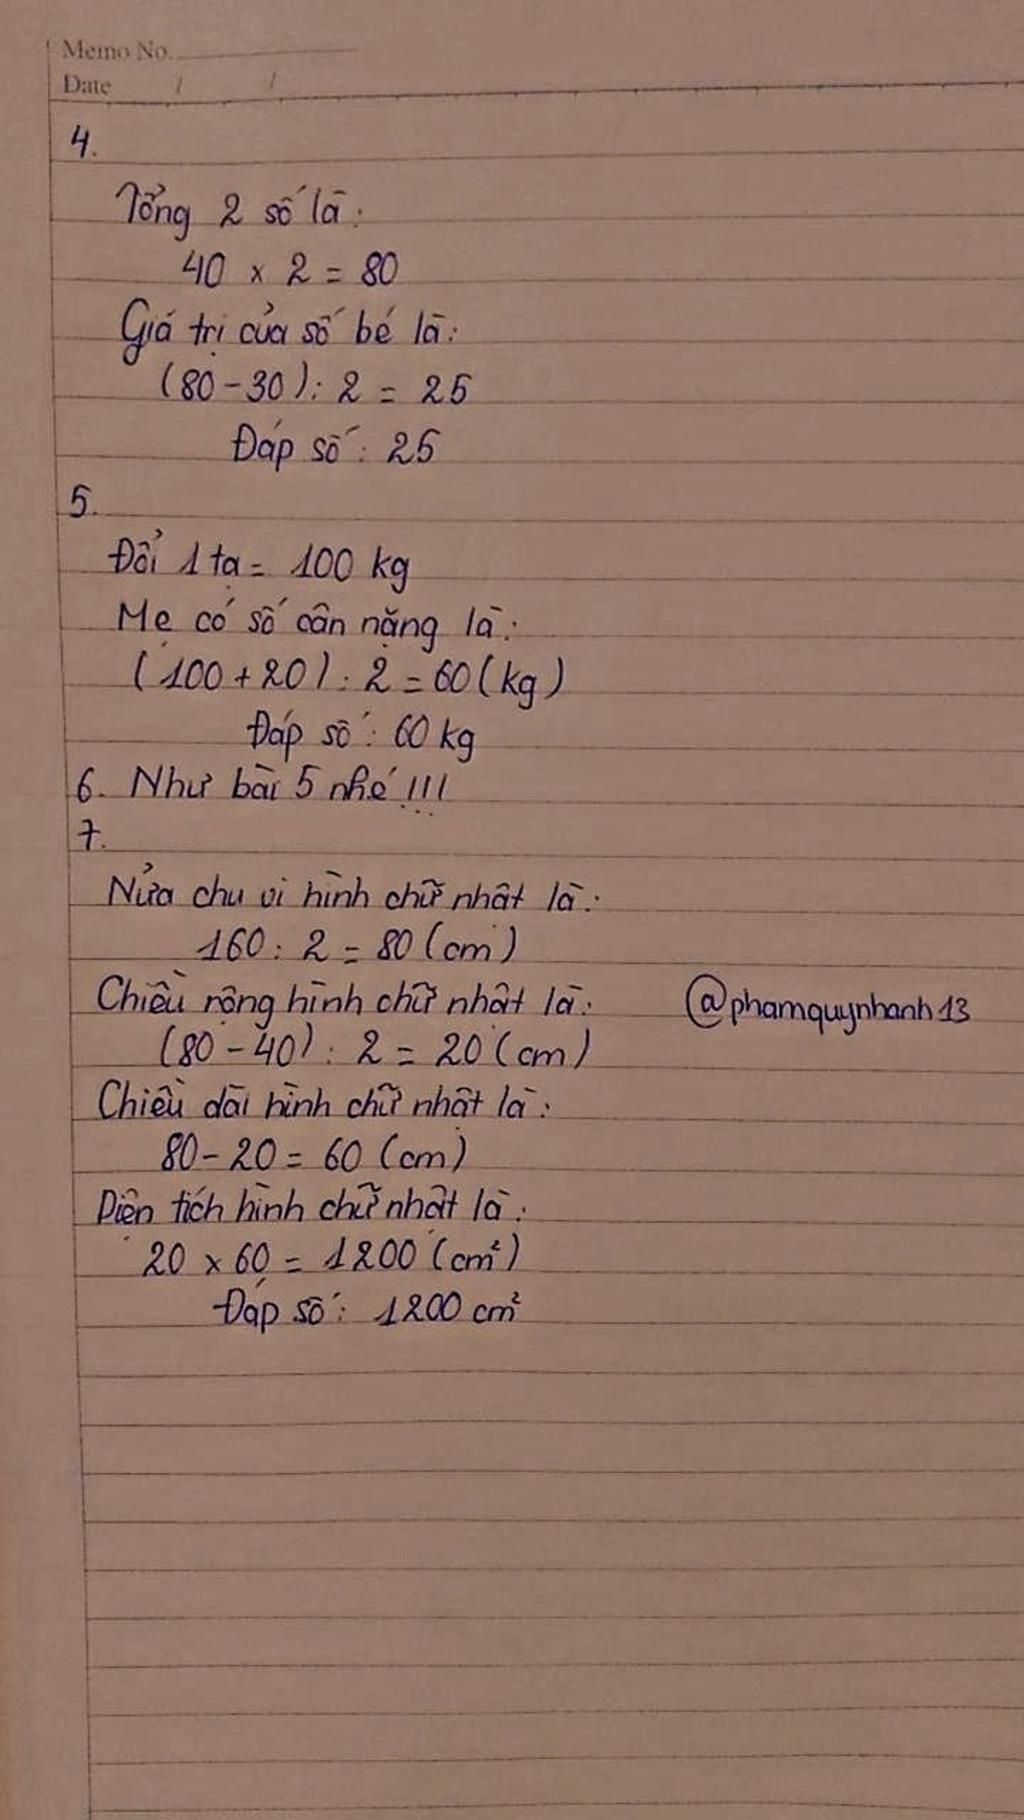 Memo No.
Date / /
4.
Tổng 2 số là:
40 x 2 = 80
Giá trị của số bé là:
(80 - 30) : 2 = 25
Đáp số: 25
5.
Đổi 1 tạ = 100 kg
Mẹ có số cân nặng là:
(100 + 20) : 2 = 60 (kg)
Đáp số: 60 kg
6. Như bài 5 nhé !!!
7.
Nửa chu vi hình chữ nhật là:
160 : 2 = 80 (cm)
Chiều rộng hình chữ nhật là:
@phamquynhanh13
(80 - 40) : 2 = 20 (cm)
Chiều dài hình chữ nhật là:
80 - 20 = 60 (cm)
Diện tích hình chữ nhật là:
20 x 60 = 1200 (cm²)
Đáp số: 1200 cm²